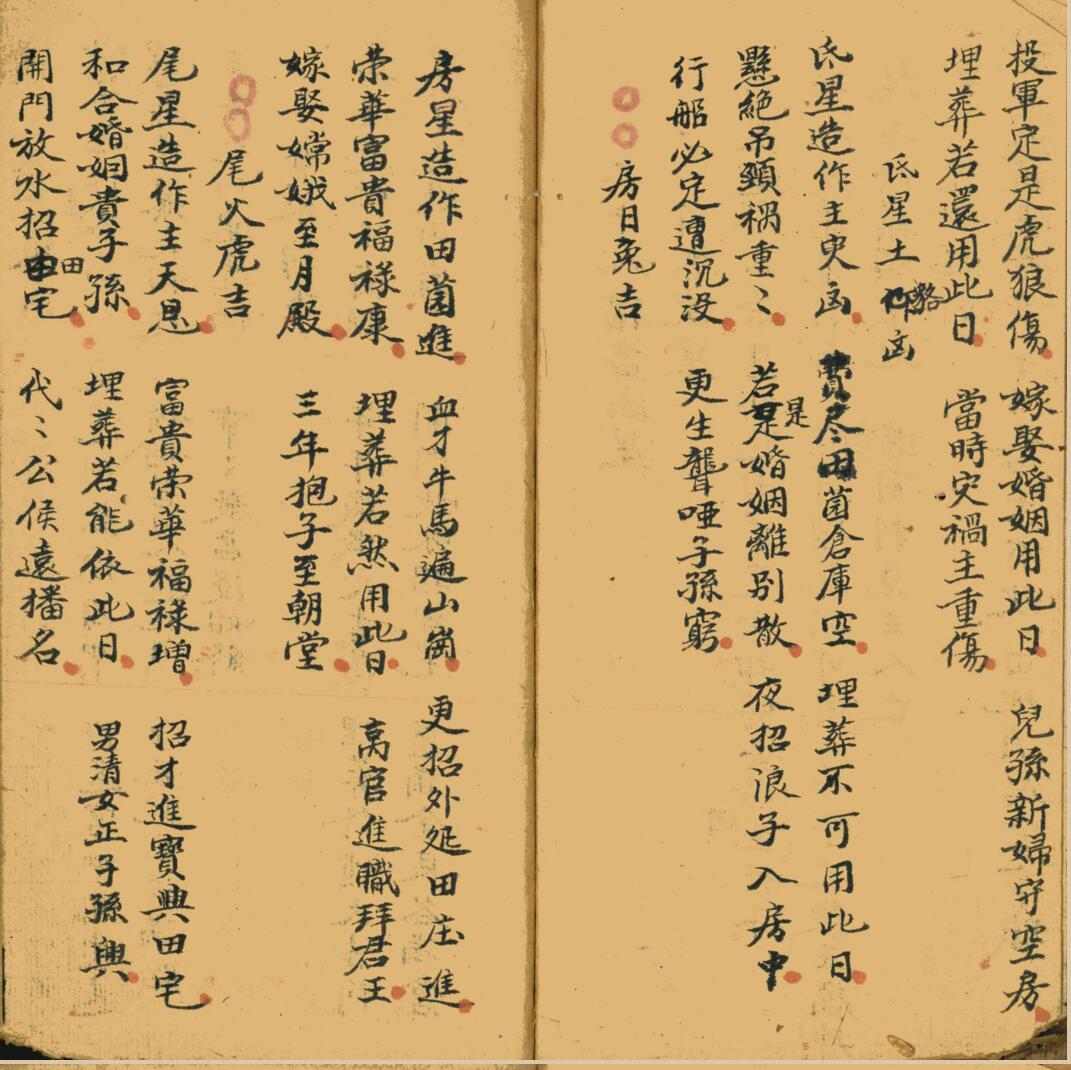 投軍定是虎狼傷 嫁娶婚姻用此日 兒孫新婦守空房
埋葬若還用此日 當時灾禍主重傷
氐星土貉凶
氐星造作主灾凶 費尽田园倉庫空 埋葬不可用此日
懸絶吊頸禍重〻 若是婚姻離別散 夜招浪子入房中
行船必定遭沉没 更生聾啞子孫窮
房日兔吉
房星造作田园進 血才牛馬遍山崗 更招外处田庄進
荣華富貴福禄康 埋葬若然用此日 高官進職拜君王
嫁娶嫦娥至月殿 三年抱子至朝堂
尾火虎吉
尾星造作主天恩 富貴荣華福禄増 招才進寶興田宅
和合婚姻貴子孫 埋葬若能依此日 男清女正子孫興
開門放水招田宅 代〻公侯遠播名